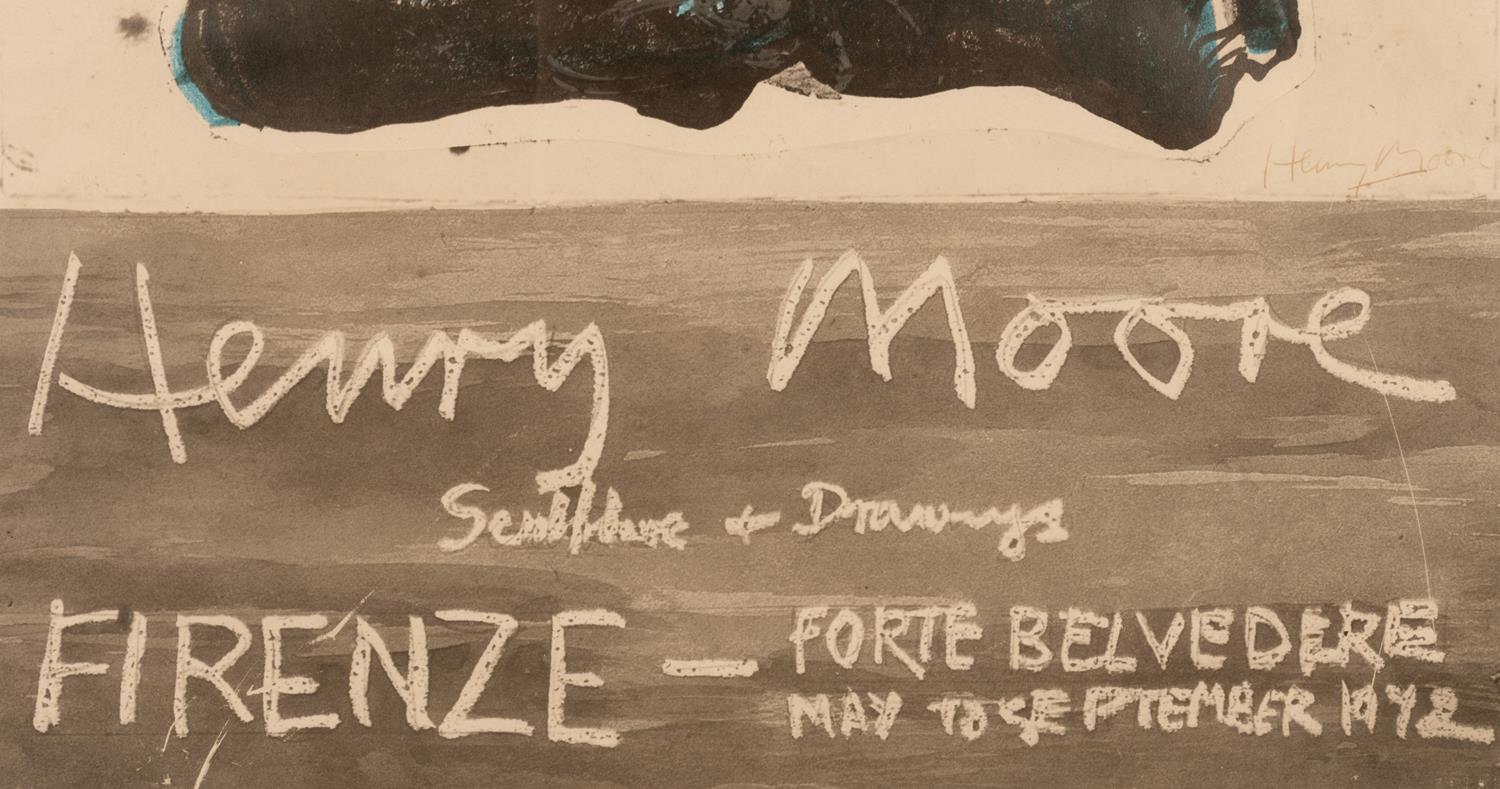 Henry Moore
Henry Moore
Sculpture + Drawings
FIRENZE — FORTE BELVEDERE
MAY TO SEPTEMBER 1972